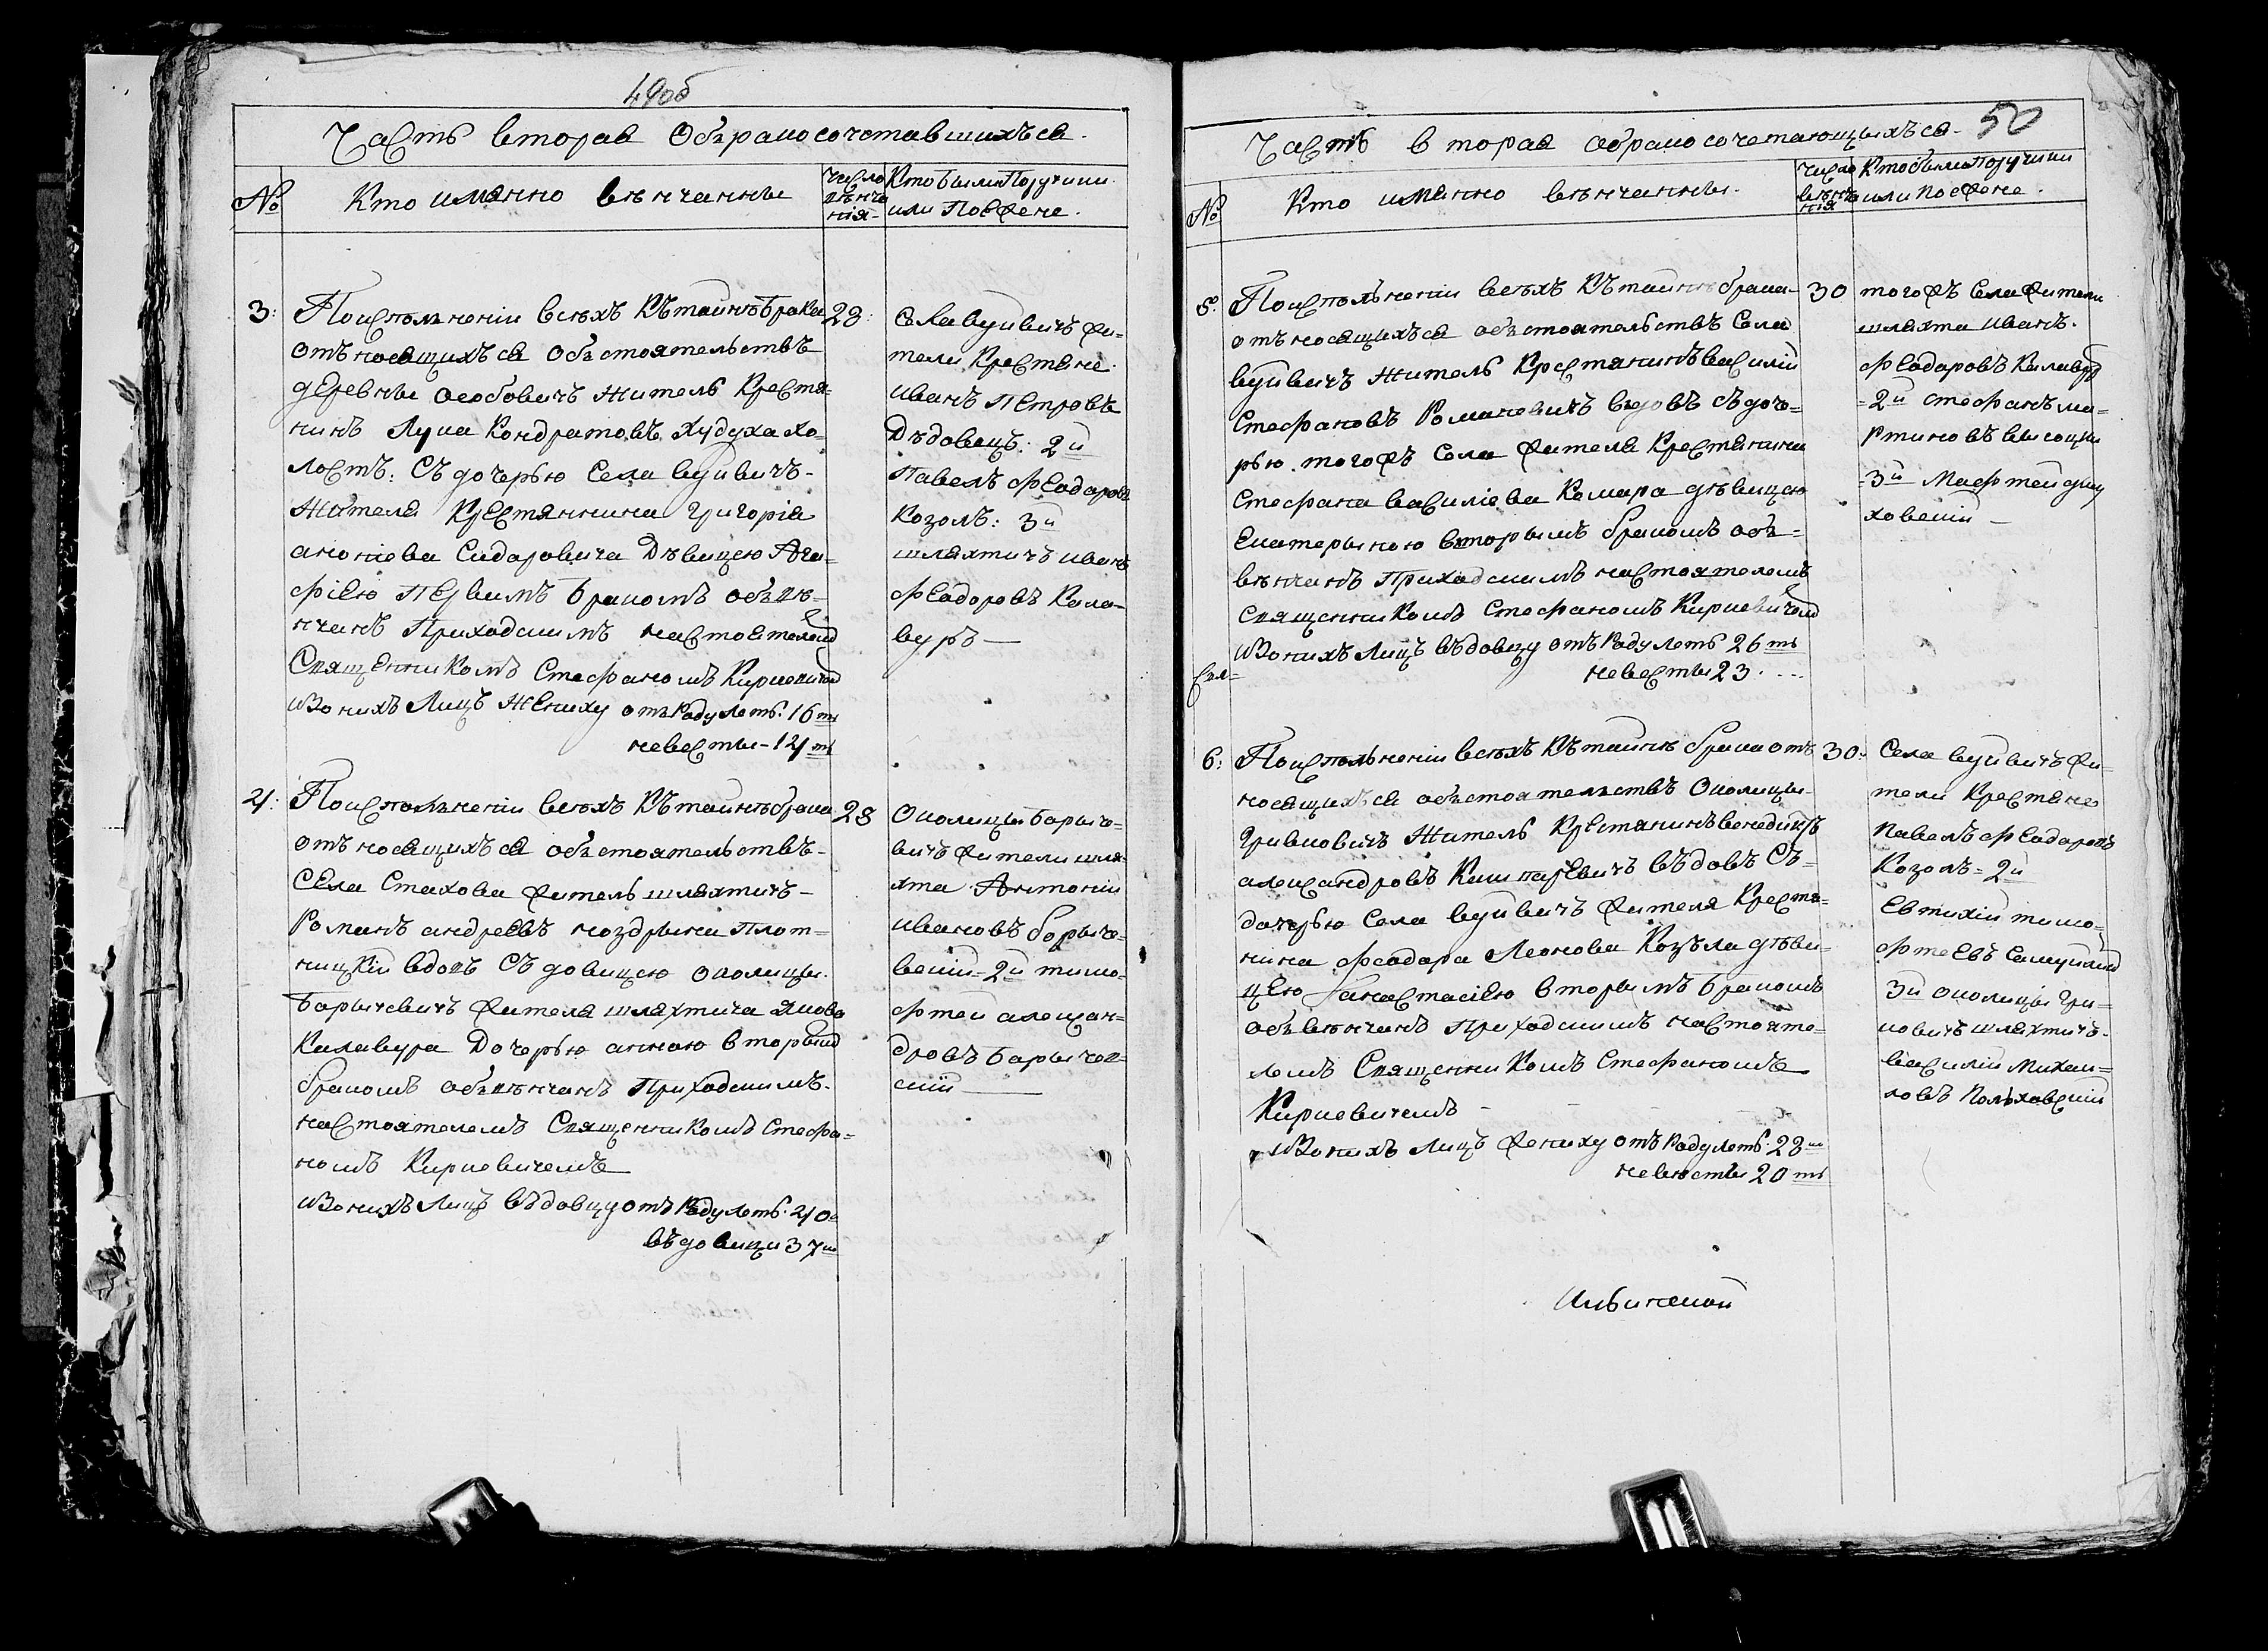 49об
Часть вторая Обракосочетавшихъся.
№
Кто имянно вѣнчанны
число вѣнчанія
Кто были Поручики или Поезжене.
3:
Поисполненіи всехъ Къ тайнѣ брака
28:
отъносящихъся обьстоятельствъ
деревны Особовичъ житель Крестя-
нинъ Лука Кондратовъ Худуха хо-
лостъ: Съ дочерью Села вуйвичъ-
Жителя Крестяннина григорія
Сидаровича Дѣвицею Ага-
фіею Первимъ бракомъ объвѣ-
нчанъ Приходскимъ настоятелемъ
Священникомъ Стефаномъ Киркевичемъ
изонихъ Лицъ Жениху отъ Роду летъ: 16ть
невесты - 14ть
Села вуйвичъ жи-
тели Крестяне
иванъ Петровъ
Дѣдовецъ: 2й
Павелъ феодоровъ
Козолъ: 3й
шляхтичъ иванъ
феодоровъ Кала-
вуръ —
4:
Поисполненіи всехъ Къ тайнѣ брака
28
отъносящихъся обьстоятельствъ-
Села Стахова житель шляхтичъ-
Романъ андреевъ ноздрына Плот-
ницкій вдовъ Съ довицею околицы.
Барычевичъ жителя шляхтича якова
Калавура Дочерью анною вторымъ
бракомъ обьвѣнчанъ Приходскимъ.
настоятелемъ Священникомъ Стефа-
номъ Киркевичемъ
изонихъ Лицъ въдовцу отъ Роду летъ: 40
въдовици 37
Околицы барыче-
вичъ жители шля-
хта Антоній
ивановъ барыче-
вскій - 2й тимо-
фтей алексан-
дровъ барычев-
скій —
50
Часть вторая обракосочетающыхъся.
№
Кто имянно вѣнчанны.
число вѣнчанія
Кто были Поручики или Поезжене.
5:
Поисполненіи всехъ Къ тайнѣ брака-
30
отъносящихъся обьстоятельствъ Села
вуйвичъ житель Крестянинъ василій
Стефановъ Романовичъ въдовъ съ доче-
рью тогожъ Села жителя Крестянина
Стефана василіева Комара дѣвицею
Екатерыною вторымъ бракомъ объ-
вѣнчанъ Приходскимъ настоятелемъ
Священникомъ Стефаномъ Киркевичемъ
изонихъ Лицъ въдовцу отъ Роду летъ 26ть
невесты 23.
тогожъ Села жители
шляхта иванъ.
феодаровъ Калавур
- 2й стефанъ ма-
ртиновъ высоцки
- 3й Мафтей дику
ховскій —
6:
Поисполненіи всехъ Къ тайнѣ брака отъ
30:
носящихъся обьстоятельствъ Околицы-
Гривковичъ житель Крестянинъ венедиктъ
александровъ Кашпаревичъ въдовъ Съ-
дочерью Села вуйвичъ жителя Крестя-
нина феодора Леонова Козъла дѣви-
цею анастасіею вторымъ бракомъ
обьвѣнчанъ Приходскимъ настояте-
лемъ Священникомъ Стефаномъ
Киркевичемъ -
изонихъ Лицъ жениху отъ Роду летъ: 28
невѣсты 20ть
Села вуйвичъ жи-
тели Крестяне
Павелъ феодаровъ
Козолъ - 2й
Евтихій тимо-
фтеевъ
3й околицы гри-
ковичъ шляхтичъ.
василій михаи-
ловъ Польховскій